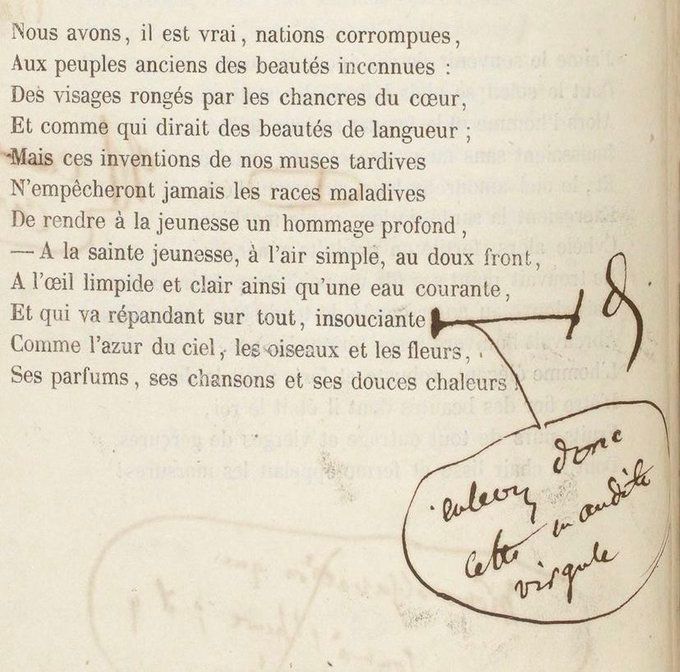 Nous avons, il est vrai, nations corrompues,
Aux peuples anciens des beautés inconnues :
Des visages rongés par les chancres du cœur,
Et comme qui dirait des beautés de langueur ;
Mais ces inventions de nos muses tardives
N'empêcheront jamais les races maladives
De rendre à la jeunesse un hommage profond,
— A la sainte jeunesse, à l'air simple, au doux front,
A l'œil limpide et clair ainsi qu'une eau courante,
Et qui va répandant sur tout, insouciante
Comme l'azur du ciel, les oiseaux et les fleurs,
Ses parfums, ses chansons et ses douces chaleurs !
enlevez donc
cette maudite
virgule